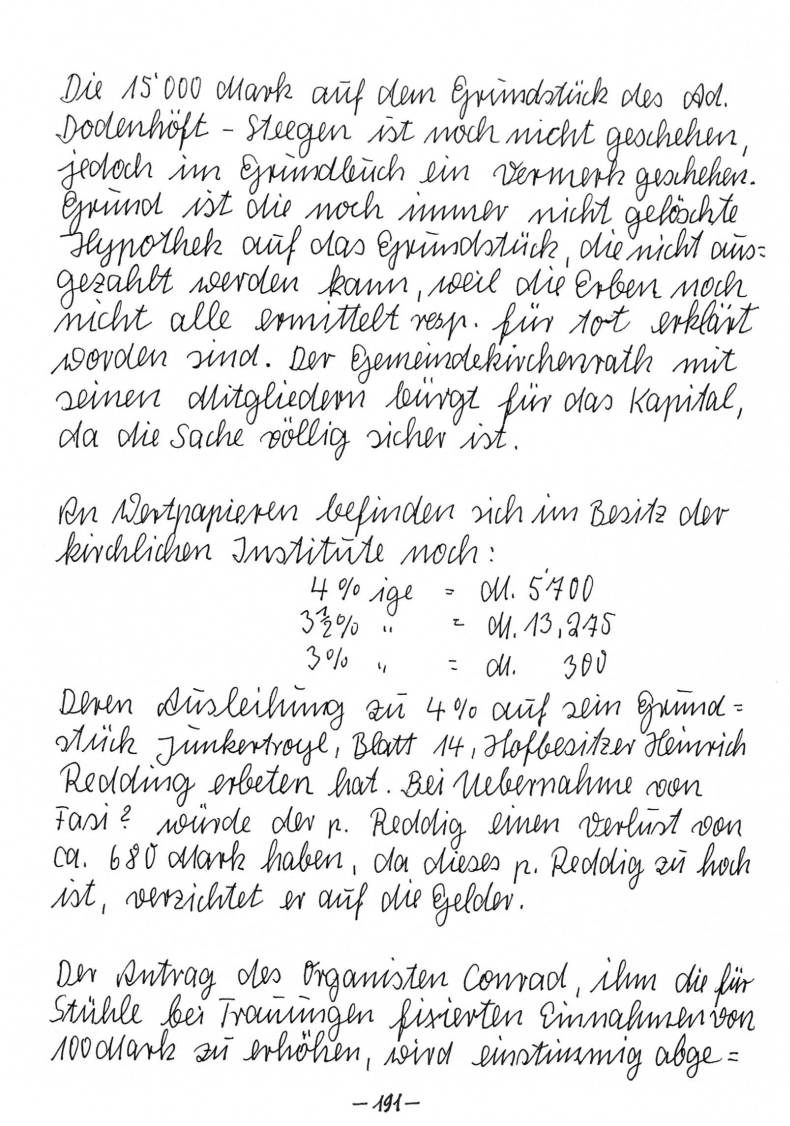 Die 15'000 Mark auf dem Grundstück des Ad.
Dodenhöft - Steegen ist noch nicht geschehen,
jedoch im Grundbuch ein Vermerk geschehen.
Grund ist die noch immer nicht gelöschte
Hypothek auf das Grundstück, die nicht aus=
gezahlt werden kann, weil die Erben noch
nicht alle ermittelt resp. für tot erklärt
worden sind. Der Gemeindekirchenrath mit
seinen Mitgliedern bürgt für das Kapital,
da die Sache völlig sicher ist.

An Wertpapieren befinden sich im Besitz der
kirchlichen Institute noch:
4 % ige = M. 5'700
3½% " = M. 13,275
3% " = M. 300
Deren Ausleihung zu 4% auf sein Grund=
stück Junkertroyl, Blatt 14, Hofbesitzer Heinrich
Redding erbeten hat. Bei Uebernahme von
Fasi? würde der p. Reddig einen Verlust von
ca. 680 Mark haben, da dieses p. Reddig zu hoch
ist, verzichtet er auf die Gelder.

Der Antrag des Organisten Conrad, ihm die für
Stühle bei Trauungen fixierten Einnahmen von
100 Mark zu erhöhen, wird einstimmig abge=
- 191 -